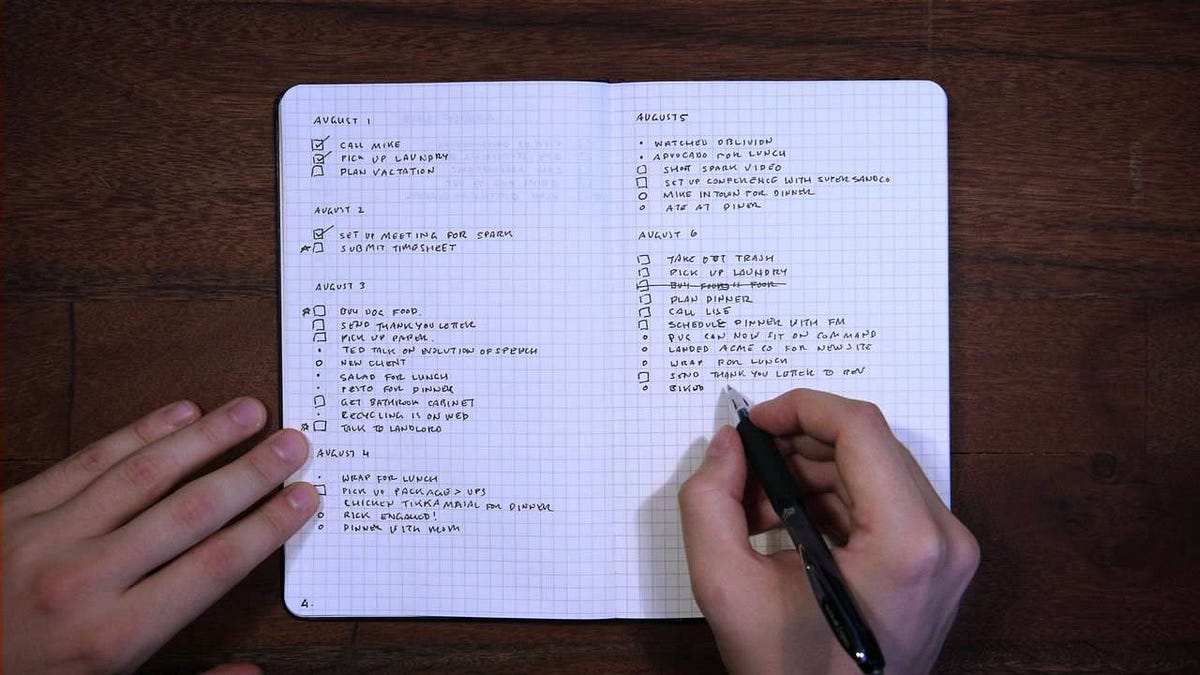 AUGUST 1
CALL MIKE
PICK UP LAUNDRY
PLAN VACTATION
AUGUST 2
SET UP MEETING FOR SPARK
SUBMIT TIMESHEET
AUGUST 3
BUY DOG FOOD.
SEND THANK YOU LETTER
PICK UP PAPER.
TED TALK ON EVOLUTION OF SPEECH
NEW CLIENT
SALAD FOR LUNCH
PESTO FOR DINNER
GET BATHROOM CABINET
RECYCLING IS ON WED
TALK TO LANDLORD
AUGUST 4
WRAP FOR LUNCH
PICK UP PACKAGE > UPS
CHICKEN TIKKA MASAL FOR DINNER
RICK ENGAGED!
DINNER WITH MOM
4.
AUGUST 5
WATCHED OBLIVION
ADVOCADO FOR LUNCH
SHOOT SPARK VIDEO
SET UP CONFERENCE WITH SUPERSANDCO
MIKE IN TOWN FOR DINNER
ATE AT DINER
AUGUST 6
TAKE OUT TRASH
PICK UP LAUNDRY
BUY FOOD
PLAN DINNER
CALL LISE
SCHEDULE DINNER WITH FM
PUG CAN NOW SIT ON COMMAND
LANDED ACME CO FOR NEW SITE
WRAP FOR LUNCH
SEND THANK YOU LETTER TO BEV
BIKED